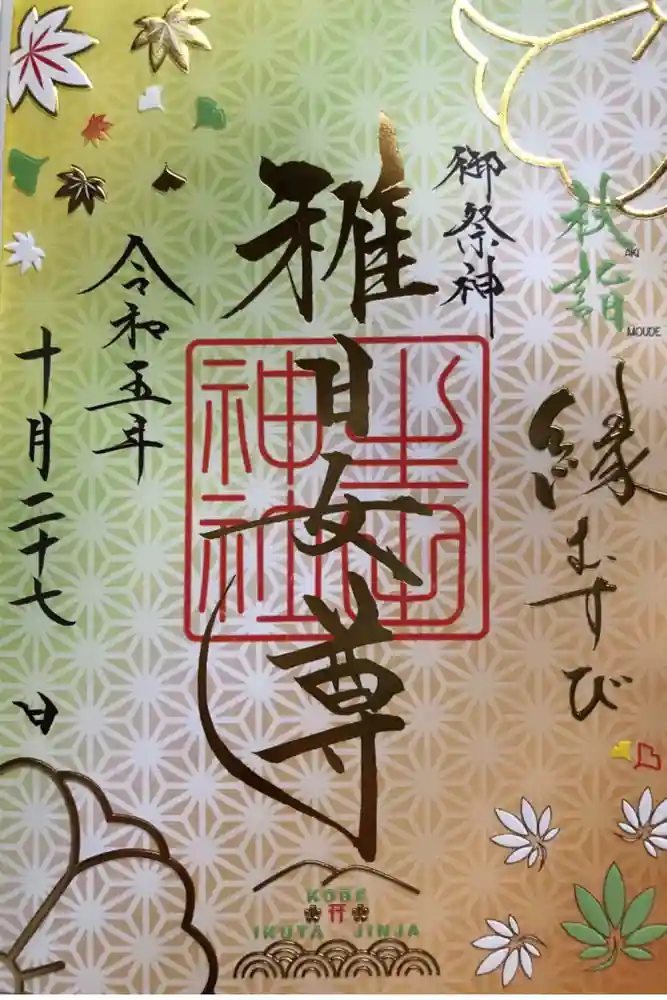 秋詣
AKI
MOUDE
縁むすび
御祭神
稚日女尊
生田神社
令和五年
十月二十七日
KOBE
IKUTA JINJA